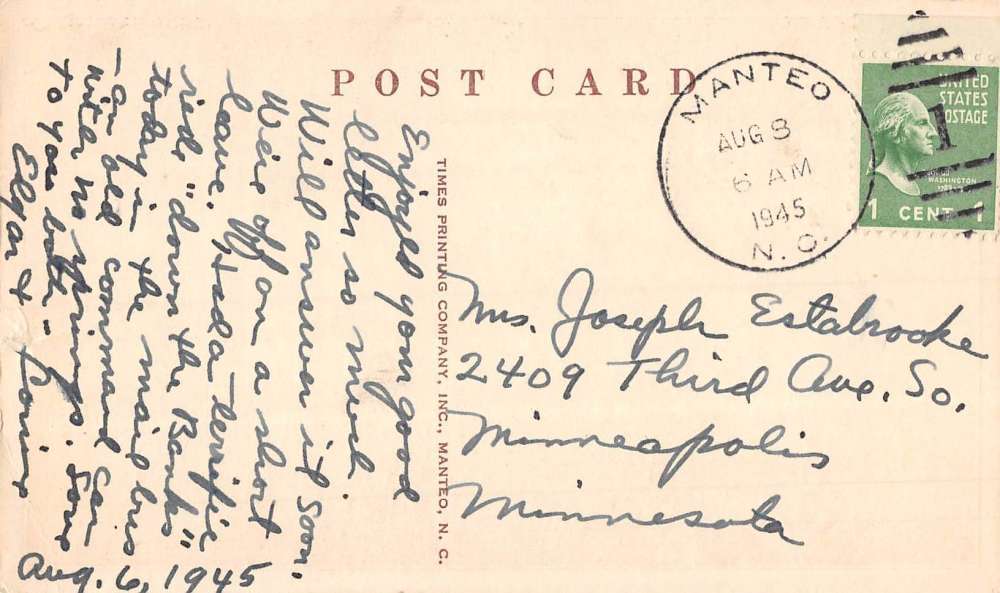 POST CARD
MANTEO
AUG 8
6 AM
1945
N. C.
UNITED
STATES
POSTAGE
WASHINGTON
1 CENT 1
Enjoyed your good
letter so much.
Will answer it soon.
We're off on a short
leave. Had a terrific
ride "down the Banks"
today in the mail bus
- an old command car
with no springs. Love
to you both -
Elgar &
Aug. 6, 1945
TIMES PRINTING COMPANY, INC., MANTEO, N. C.
Mrs. Joseph Estabrooke
2409 Third Ave. So.
Minneapolis
Minnesota